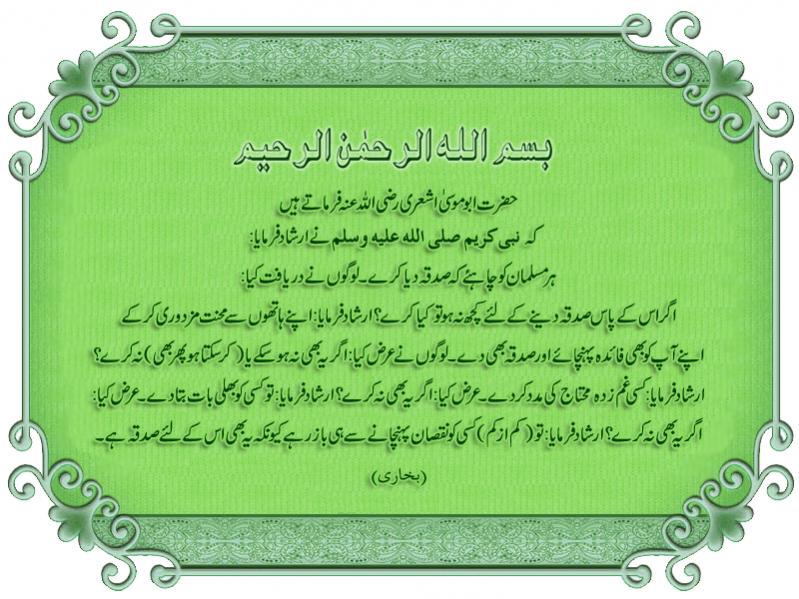 بسم الله الرحمٰن الرحيم
حضرت ابو موسیٰ اشعری رضی اللہ عنہ فرماتے ہیں
کہ نبی کریم صلی الله علیه وسلم نے ارشاد فرمایا:
ہر مسلمان کو چاہئے کہ صدقہ دیا کرے۔ لوگوں نے دریافت کیا:
اگر اس کے پاس صدقہ دینے کے لئے کچھ نہ ہو تو کیا کرے؟ ارشاد فرمایا: اپنے ہاتھوں سے محنت مزدوری کر کے
اپنے آپ کو بھی فائدہ پہنچائے اور صدقہ بھی دے۔ لوگوں نے عرض کیا: اگر یہ بھی نہ ہو سکے یا (کر سکتا ہو پھر بھی) نہ کرے؟
ارشاد فرمایا: کسی غم زدہ محتاج کی مدد کر دے۔ عرض کیا: اگر یہ بھی نہ کرے؟ ارشاد فرمایا: تو کسی کو بھلی بات بتا دے۔ عرض کیا:
اگر یہ بھی نہ کرے؟ ارشاد فرمایا: تو (کم از کم) کسی کو نقصان پہنچانے سے ہی باز رہے کیونکہ یہ بھی اس کے لئے صدقہ ہے۔
(بخاری)